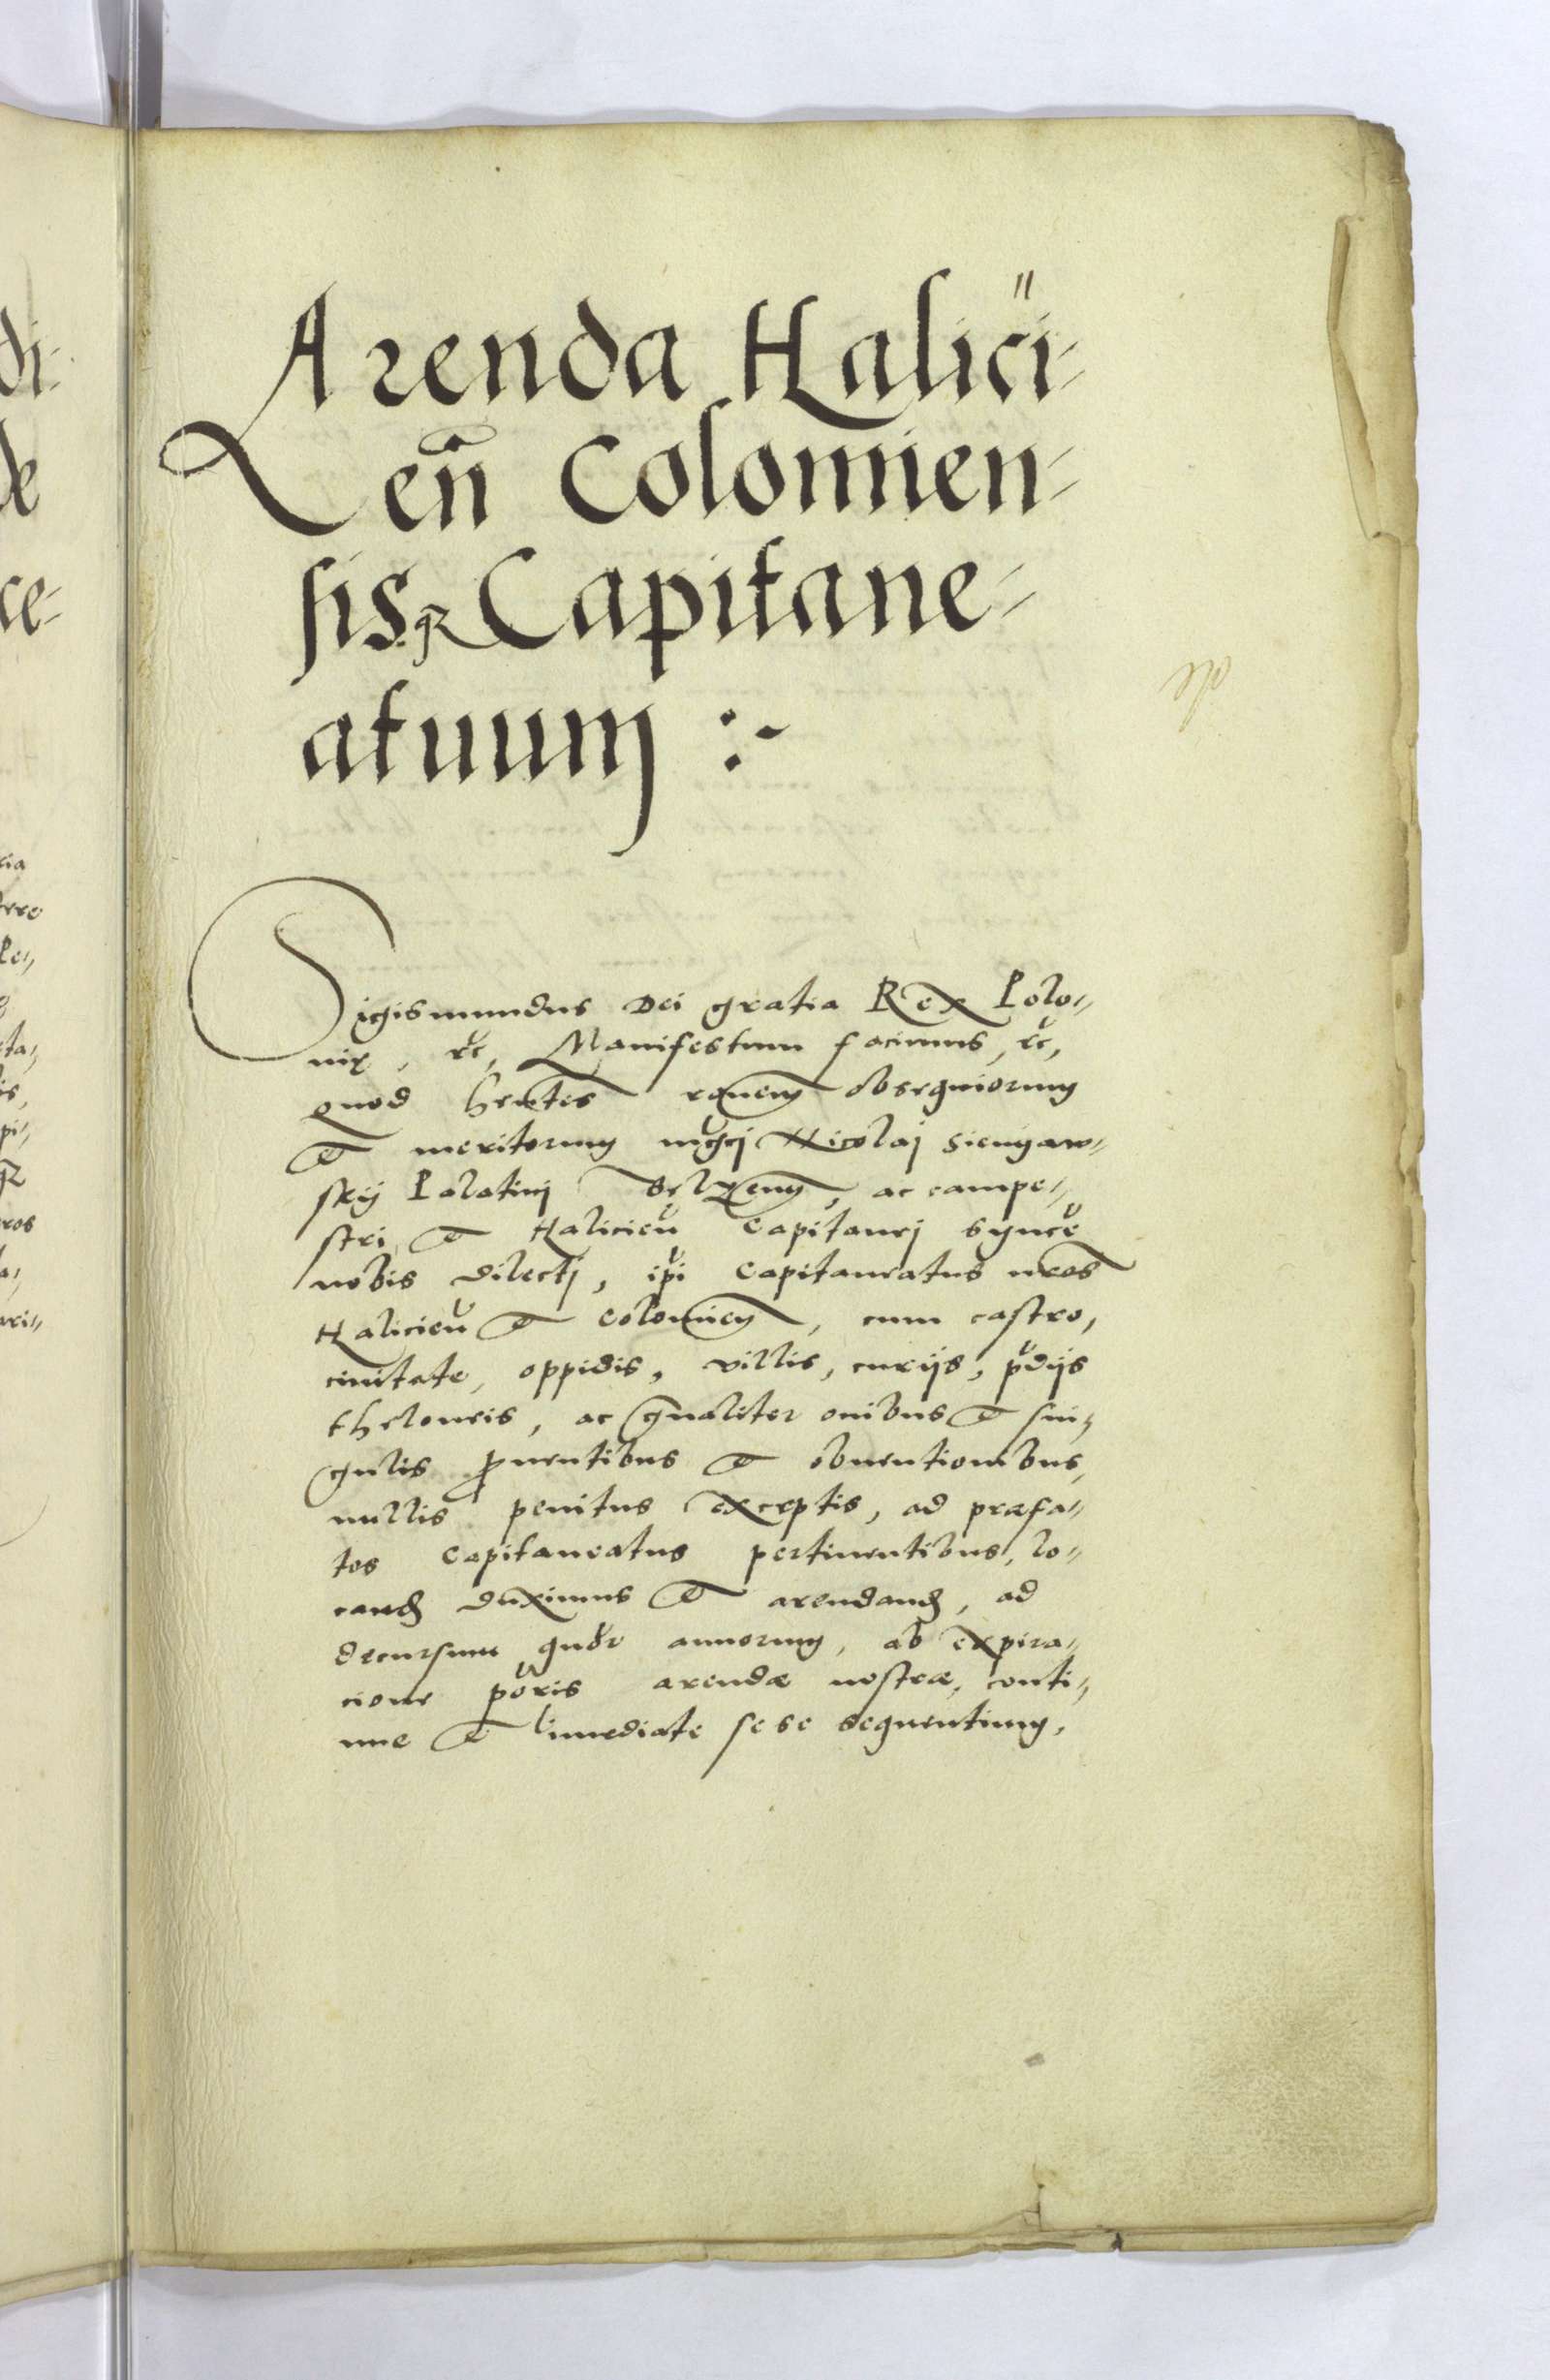 Arenda Halici-
en̄ Colomien-
sisq̨ Capitane-
atuum :-
Sigismundus Dei gratia Rex Polo-
nię, etc̃, Manifestum facimus, etc̃,
quod hentes rōnem obsequiorum
et meritorum mgci Nicolaj Sieniaw-
skij Palatinj Belzen̄, ac campe-
stri, et Halicien̄ Capitanej syncē
nobis dilectj, ip̃i Capitaneatus nr̃os
Halicien̄ et Colomien̄, cum castro,
ciuitate, oppidis, villis, curijs, p̃dijs
theloneis, ac gn̄aliter oñibus et sin-
gulis ꝓuentibus et obuentionibus,
nullis penitus exceptis, ad præfa-
tos Capitaneatus pertinentibus, lo-
cand̄ duximus et arendand̄, ad
decursum quõr annorum, ab expira-
cione põris arendæ nostræ, conti-
nue et im̃ediate sese sequentium,
di-
de
ce-